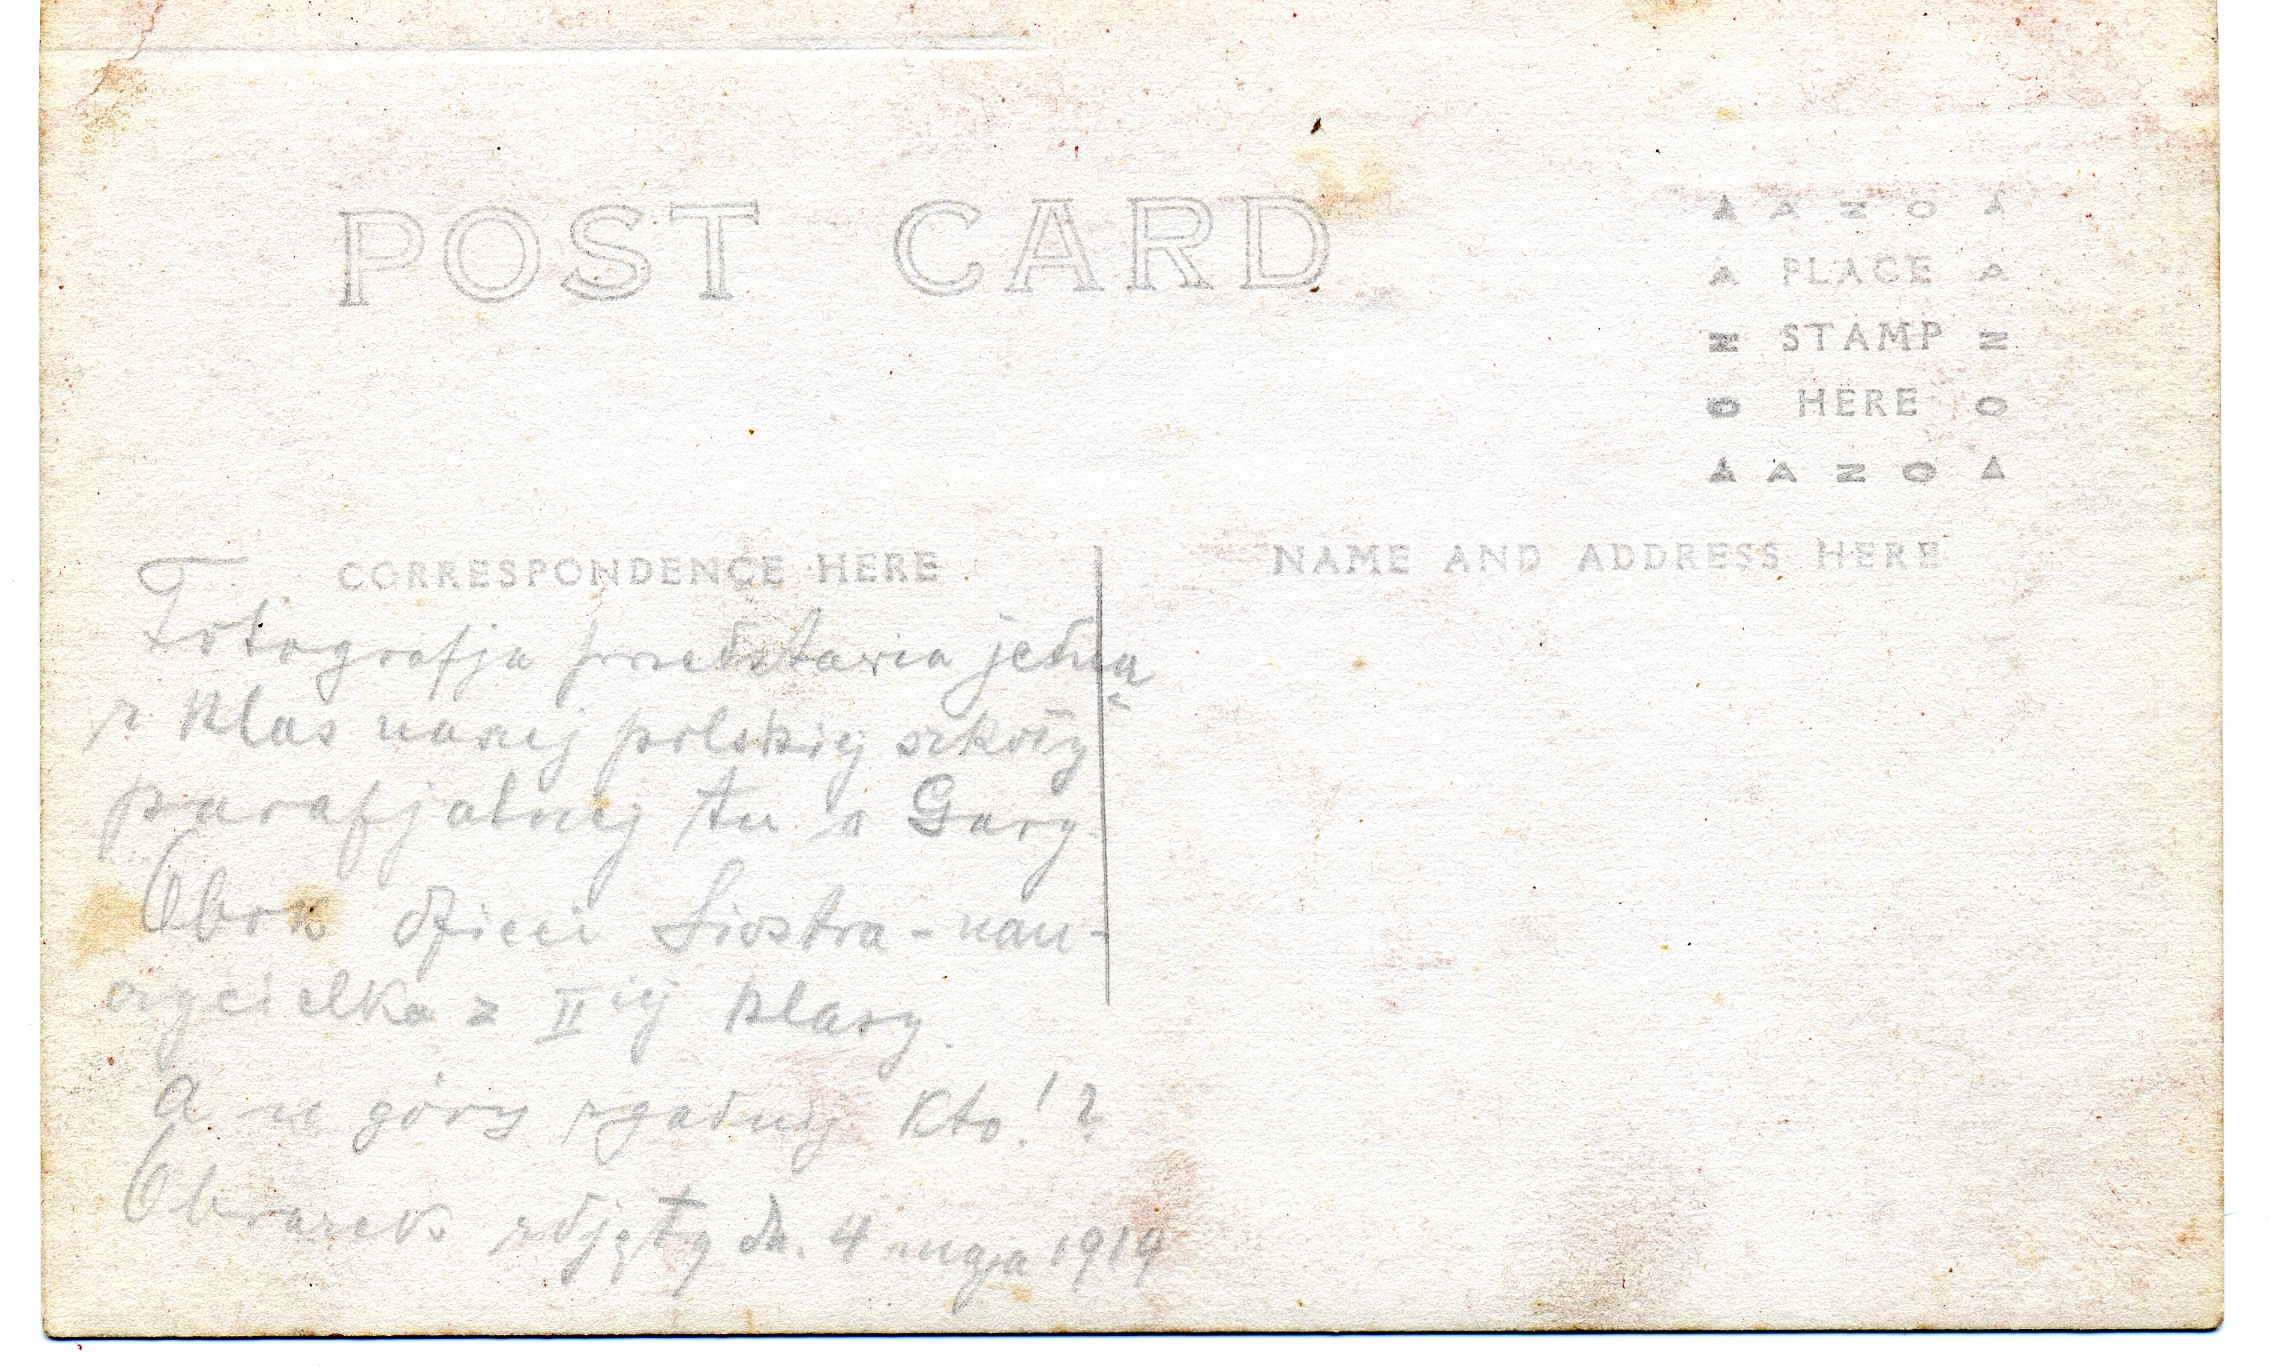 POST CARD
AZO
PLACE
STAMP
HERE
AZO
CORRESPONDENCE HERE
NAME AND ADDRESS HERE
Fotografja przedstawia jedną
z klas naszej polskiej szkoły
parafjalnej tu w Gary.
Obok dzieci Siostra - nau-
czycielka z II iej klasy.
A u góry zgadnij kto!?
Obrazek zdjęty dn. 4 maja 1919